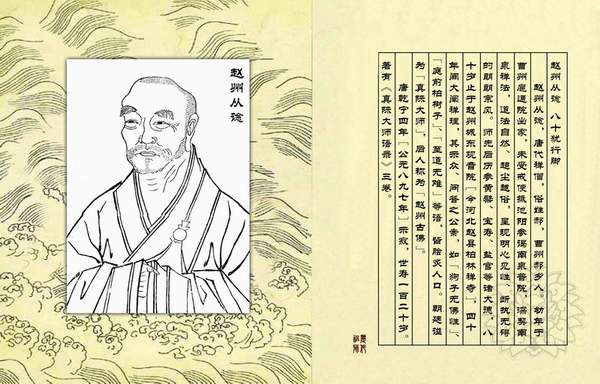 赵州从谂
赵州从谂 八十犹行脚
赵州从谂，唐代禅僧，俗姓郝，曹州郝乡人，幼年于
曹州扈通院出家，未受戒便抵池阳参谒南泉普愿，深契南
泉禅法，道法自然、超尘越俗，呈现明心见性、断执无碍
的朗朗宗风。师先后历参黄檗、宝寿、盐官等诸大德，八
十岁止于赵州城东观音院［今河北赵县柏林禅寺］，四十
年间大阐禅理，其示众、问答之公案，如「狗子无佛性」、
「庭前柏树子」、「至道无难」等语，皆脍炙人口。朝廷谥
为「真际大师」，后人称为「赵州古佛」。
唐乾宁四年［公元八九七年］示寂，世寿一百二十岁。
著有《真际大师语录》三卷。